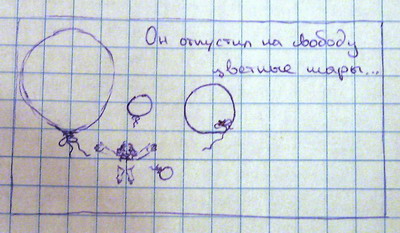 Он отпустил на свободу
цветные шары...